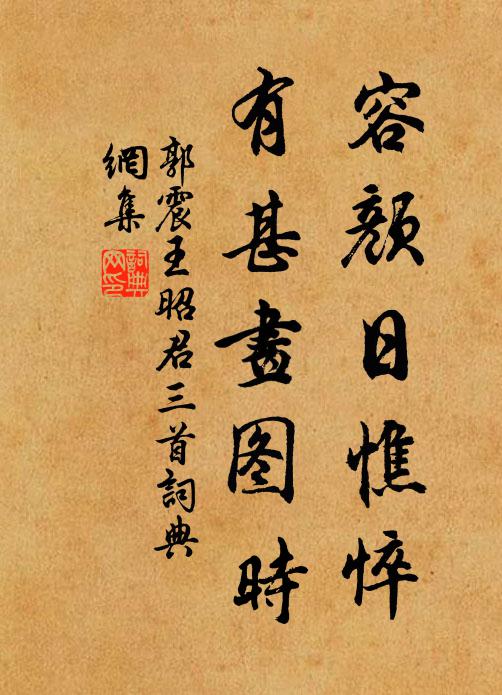 容颜日憔悴
有甚畫图時
郭震王昭君三首詞典
網集
詞典网印